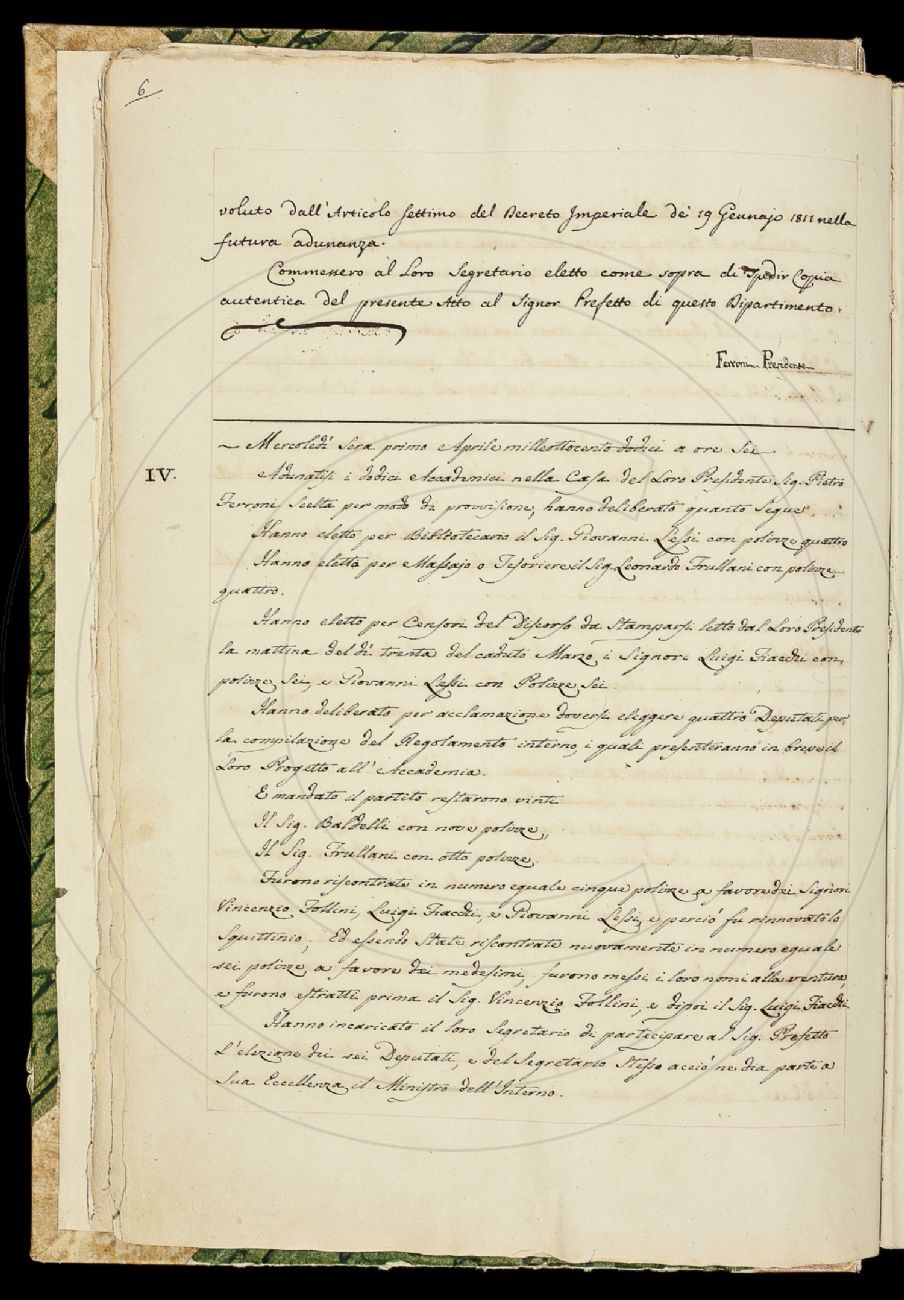 6
voluto dall'Articolo settimo del Decreto Imperiale de' 19 Gennajo 1811 nella
futura adunanza.
Commessero al Loro Segretario eletto come sopra di Spedir Copia
autentica del presente Atto al Signor Prefetto di questo Dipartimento.
Ferroni Presidente
IV.
~ Mercoledì Sera primo Aprile milleottocento dodici a ore Sei
Adunatisi i dodici Accademici nella Casa del Loro Presidente Sig. Pietro
Ferroni Scelta per modo di provvisione, hanno deliberato quanto Segue
Hanno eletto per Bibliotecario il Sig. Giovanni Lessi con polizze quattro
Hanno eletto per Massajo o Tesoriere il Sig. Leonardo Frullani con polizze
quattro.
Hanno eletto per Censori del Discorso da Stamparsi letto dal Loro Presidente
la mattina del dì trenta del caduto Marzo, i Signori Luigi Fiacchi con
polizze Sei, e Giovanni Lessi con Polizze Sei.
Hanno deliberato per acclamazione doversi eleggere quattro Deputati per
la compilazione del Regolamento interno, i quali presenteranno in breve il
Loro Progetto all'Accademia.
E mandato il partito restarono vinti
Il Sig. Baldelli con nove polizze,
Il Sig. Frullani con otto polizze.
Furono riscontrate in numero eguale cinque polizze a favore dei Signori
Vincenzio Follini, Luigi Fiacchi, e Giovanni Lessi, e perciò fu rinnovato lo
Squittinio; Ed essendo State riscontrate nuovamente in numero eguale
sei polizze a favore dei medesimi, furono messi i loro nomi alla ventura,
e furono estratti prima il Sig. Vincenzio Follini, e dipoi il Sig. Luigi Fiacchi.
Hanno incaricato il loro Segretario di partecipare al Sig. Prefetto
L'elezione dei sei Deputati, e del Segretario Stesso acciò ne dia parte a
Sua Eccellenza il Ministro dell'Interno.